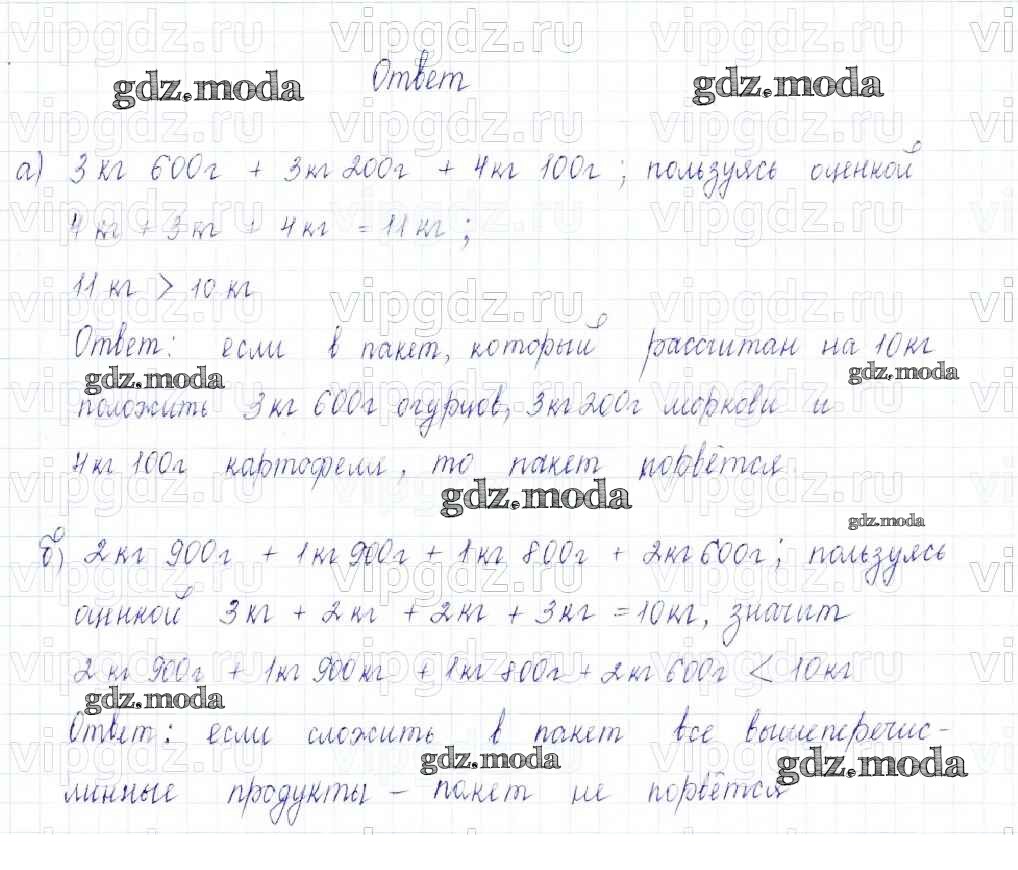 Ответ
а) 3 кг 600г + 3кг 200г + 4кг 100г ; пользуясь оценной
4 кг + 3 кг + 4 кг = 11 кг ;
11 кг > 10 кг
Ответ: если в пакет, который рассчитан на 10 кг
положить 3кг 600г огурцов, 3кг 200г моркови и
4кг 100г картофеля, то пакет порвётся
б) 2 кг 900г + 1кг 900г + 1кг 800г + 2кг 600г ; пользуясь
оценной 3кг + 2кг + 2кг + 3кг = 10кг, значит
2 кг 900г + 1кг 900кг + 1кг 800г + 2кг 600г < 10кг
Ответ: если сложить в пакет все вышеперечис-
линные продукты – пакет не порвётся
gdz.moda
vipgdz.ru